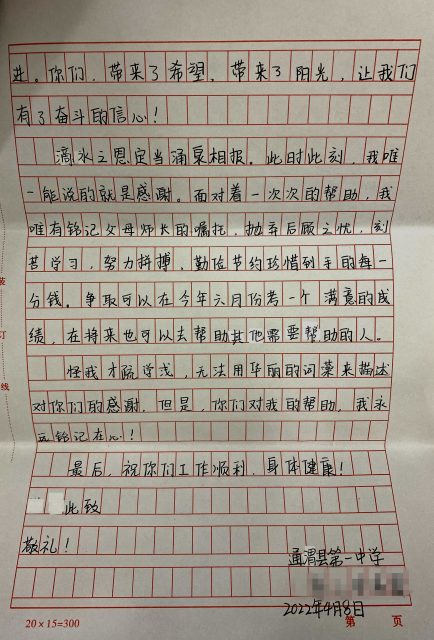 进。你们，带来了希望，带来了阳光，让我们
有了奋斗的信心！
滴水之恩定当涌泉相报。此时此刻，我唯
一能说的就是感谢。面对着一次次的帮助，我
唯有铭记父母师长的嘱托，抛弃后顾之忧，刻
苦学习，努力拼搏，勤俭节约珍惜到手的每一
分钱。争取可以在今年六月份考一个满意的成
绩，在将来也可以去帮助其他需要帮助的人。
怪我才疏学浅，无法用华丽的词藻来描述
对你们的感谢，但是，你们对我的帮助，我永
远铭记在心！
最后，祝你们工作顺利，身体健康！
此致
敬礼！
通渭县第一中学
2022年4月8日
装
订
线
20×15=300
第 页